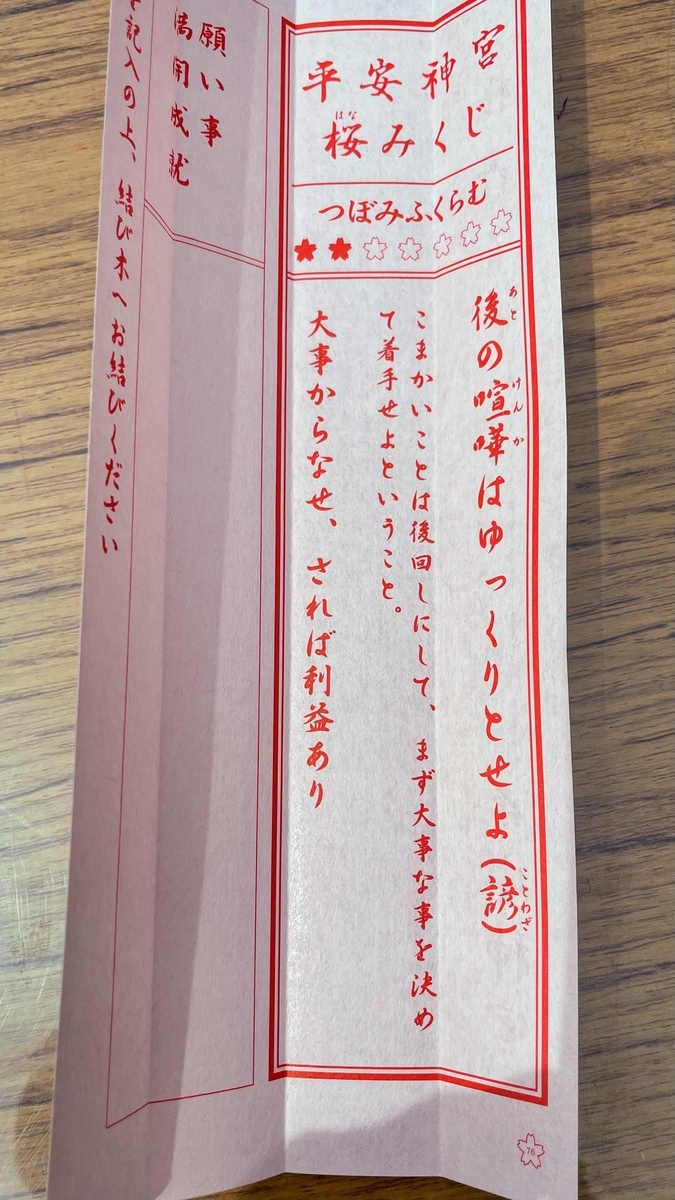 平安神宮
桜みくじ
はな
つぼみふくらむ
後の喧嘩はゆっくりとせよ(諺)
あと けんか ことわざ
こまかいことは後回しにして、まず大事な事を決め
て着手せよということ。
大事からなせ、されば利益あり
願い事
満開成就
記入の上、結び木へお結びください
76